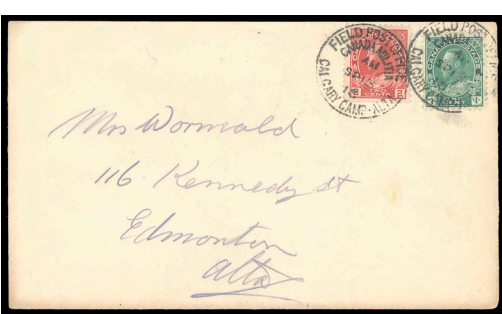 FIELD POST OFFICE
CANADA MILITIA
AM
CALGARY CAMP-ALTA
FIELD POST
CANADA
CALGARY
2
CENTS
1
Mrs Wormald
116 Kennedy St
Edmonton
Alta